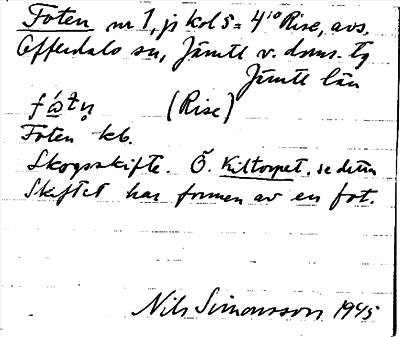 Foten nr 1, på kol 5 = 4¹⁰ Rise, avs.
Offerdals sn, Jämtl v. doms. tg
Jämtl län
fω´tn̥ (Rise)
Foten kb.
Skogsskifte. Ö. Kiltorpet, se detta
Skiftet har formen av en fot.
Nils Simonsson 1945